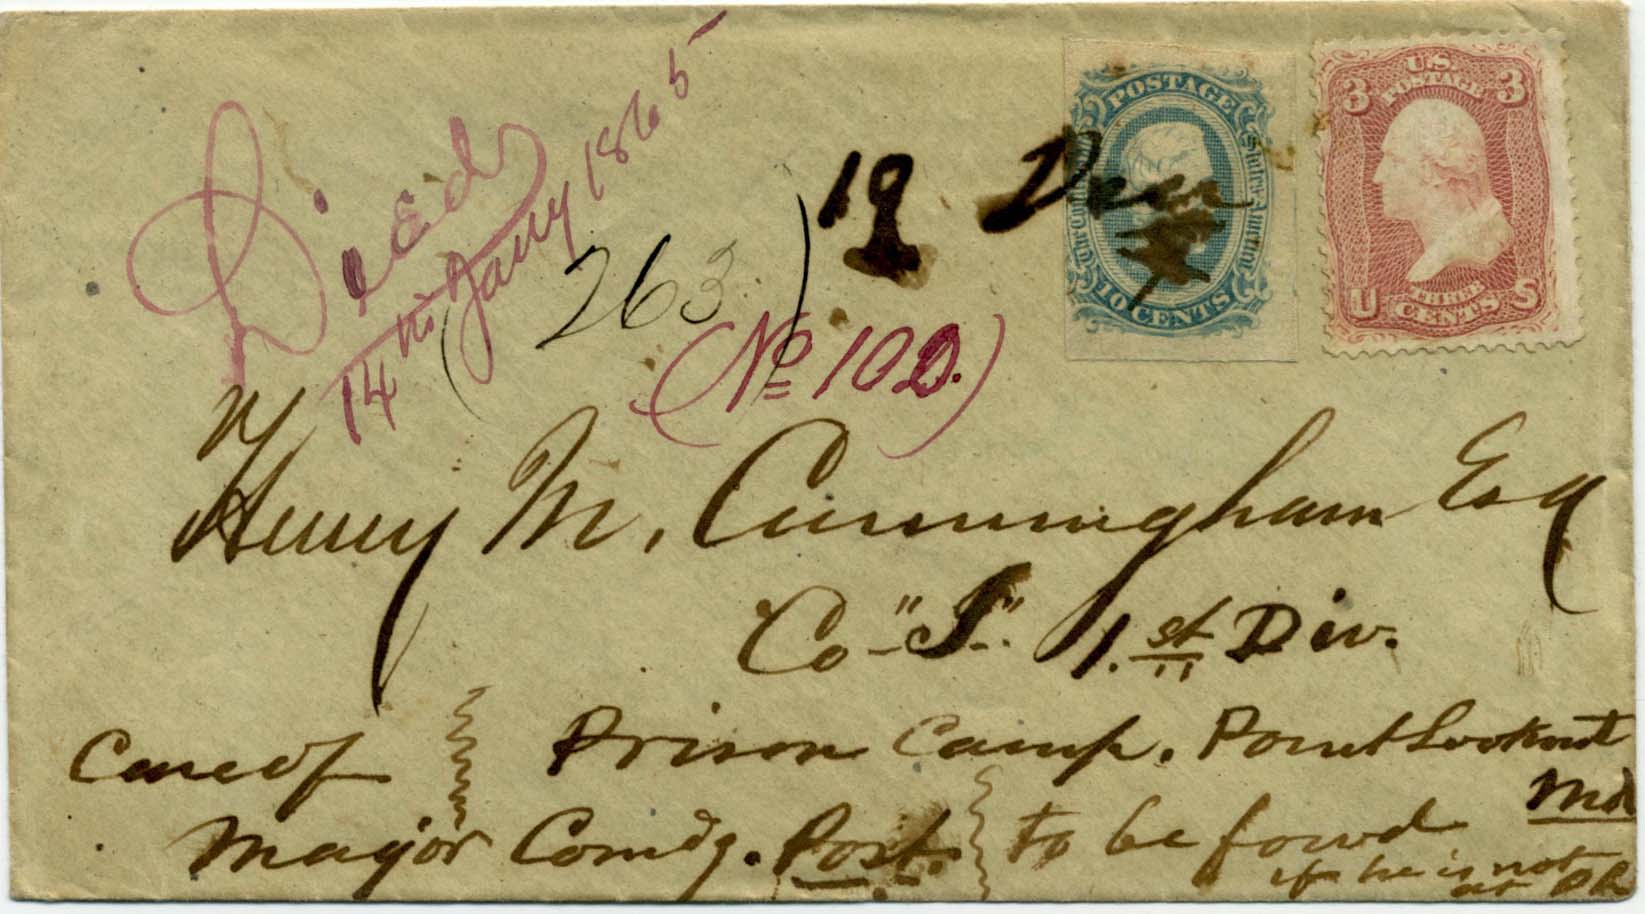 Died
14th Jany 1865
(263)
(No 100.)
19 Decr
POSTAGE
10 CENTS
U.S.
POSTAGE
3 3
U S
THREE
CENTS
Henry M. Cunningham Esq
Co "I" 1.st Div.
Prison Camp. Point Lookout
Md
Care of
Major Comdg. Post.
To be forwd
if he is not
at PL